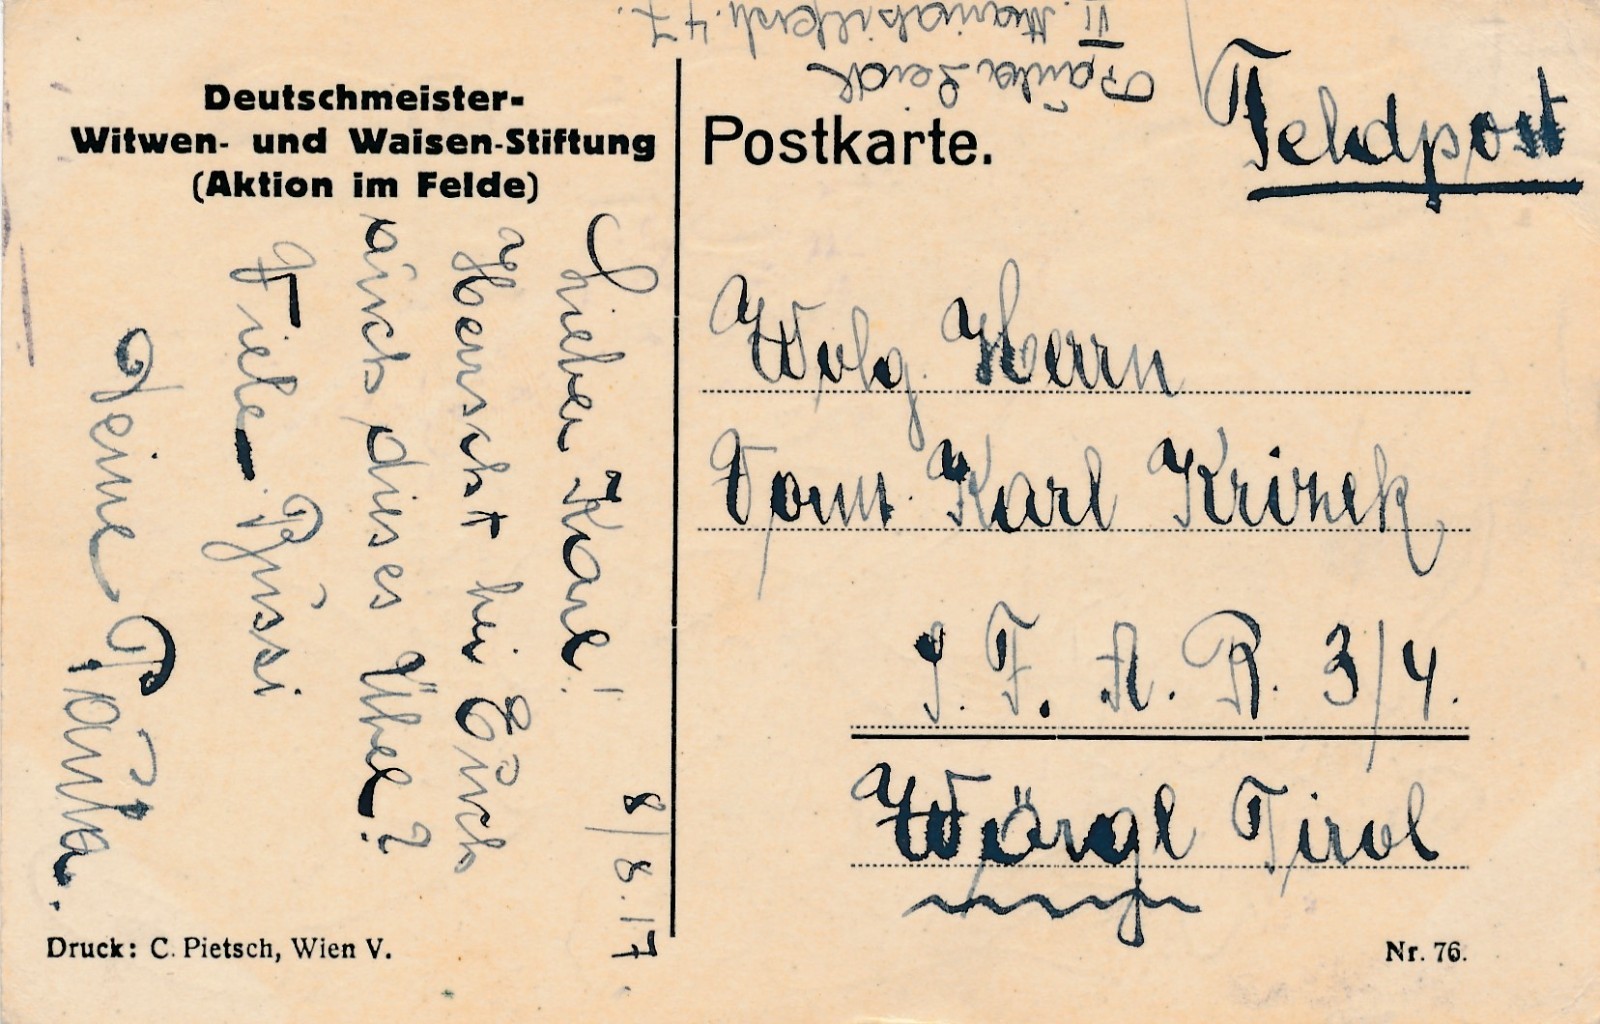 Paula
II.
47.
Feldpost
Deutschmeister-
Witwen- und Waisen-Stiftung
(Aktion im Felde)
Postkarte.
8/8.17
Lieber Karl!
Herrscht bei Euch
auch dieses Übel?
Viele Bussi
Deine Paula.
Wolg. Herrn
Vorm. Karl Krizek
F. A. R. 3/4.
Wörgl Tirol
Druck: C. Pietsch, Wien V.
Nr. 76.